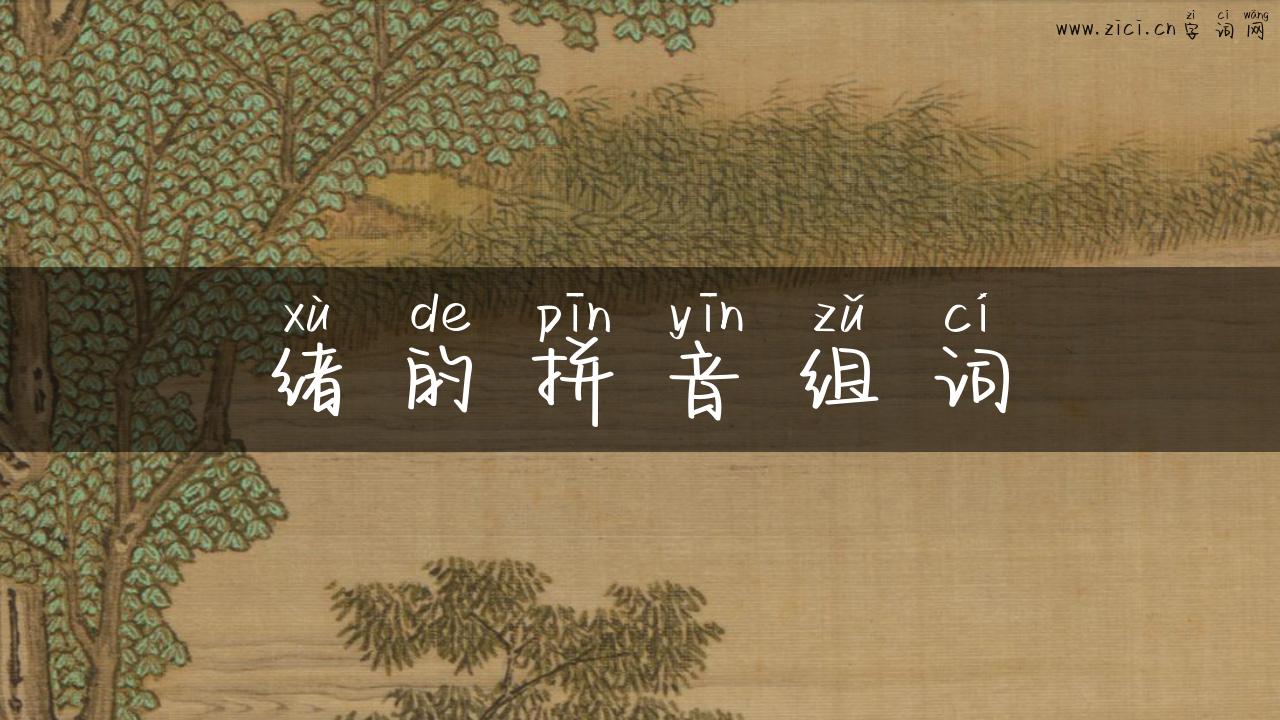 zì cí wǎng
www.zici.cn 字词网
xù de pīn yīn zǔ cí
绪的拼音组词